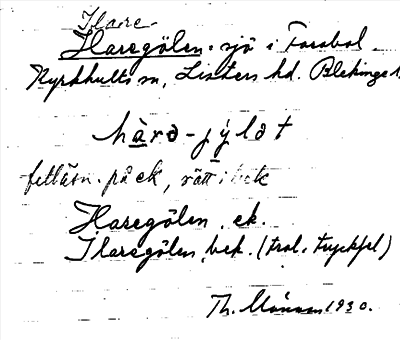 Hare-
Haregölen. sjö i Farabol
Kyrkhults sn, Listers hd. Blekinge l.
hàrə-jýlət
felläsn. på ek, rätt i bek
Haregölen, ek.
Ilaregölen, bek. (trol. tryckfel)
Th. 1930.